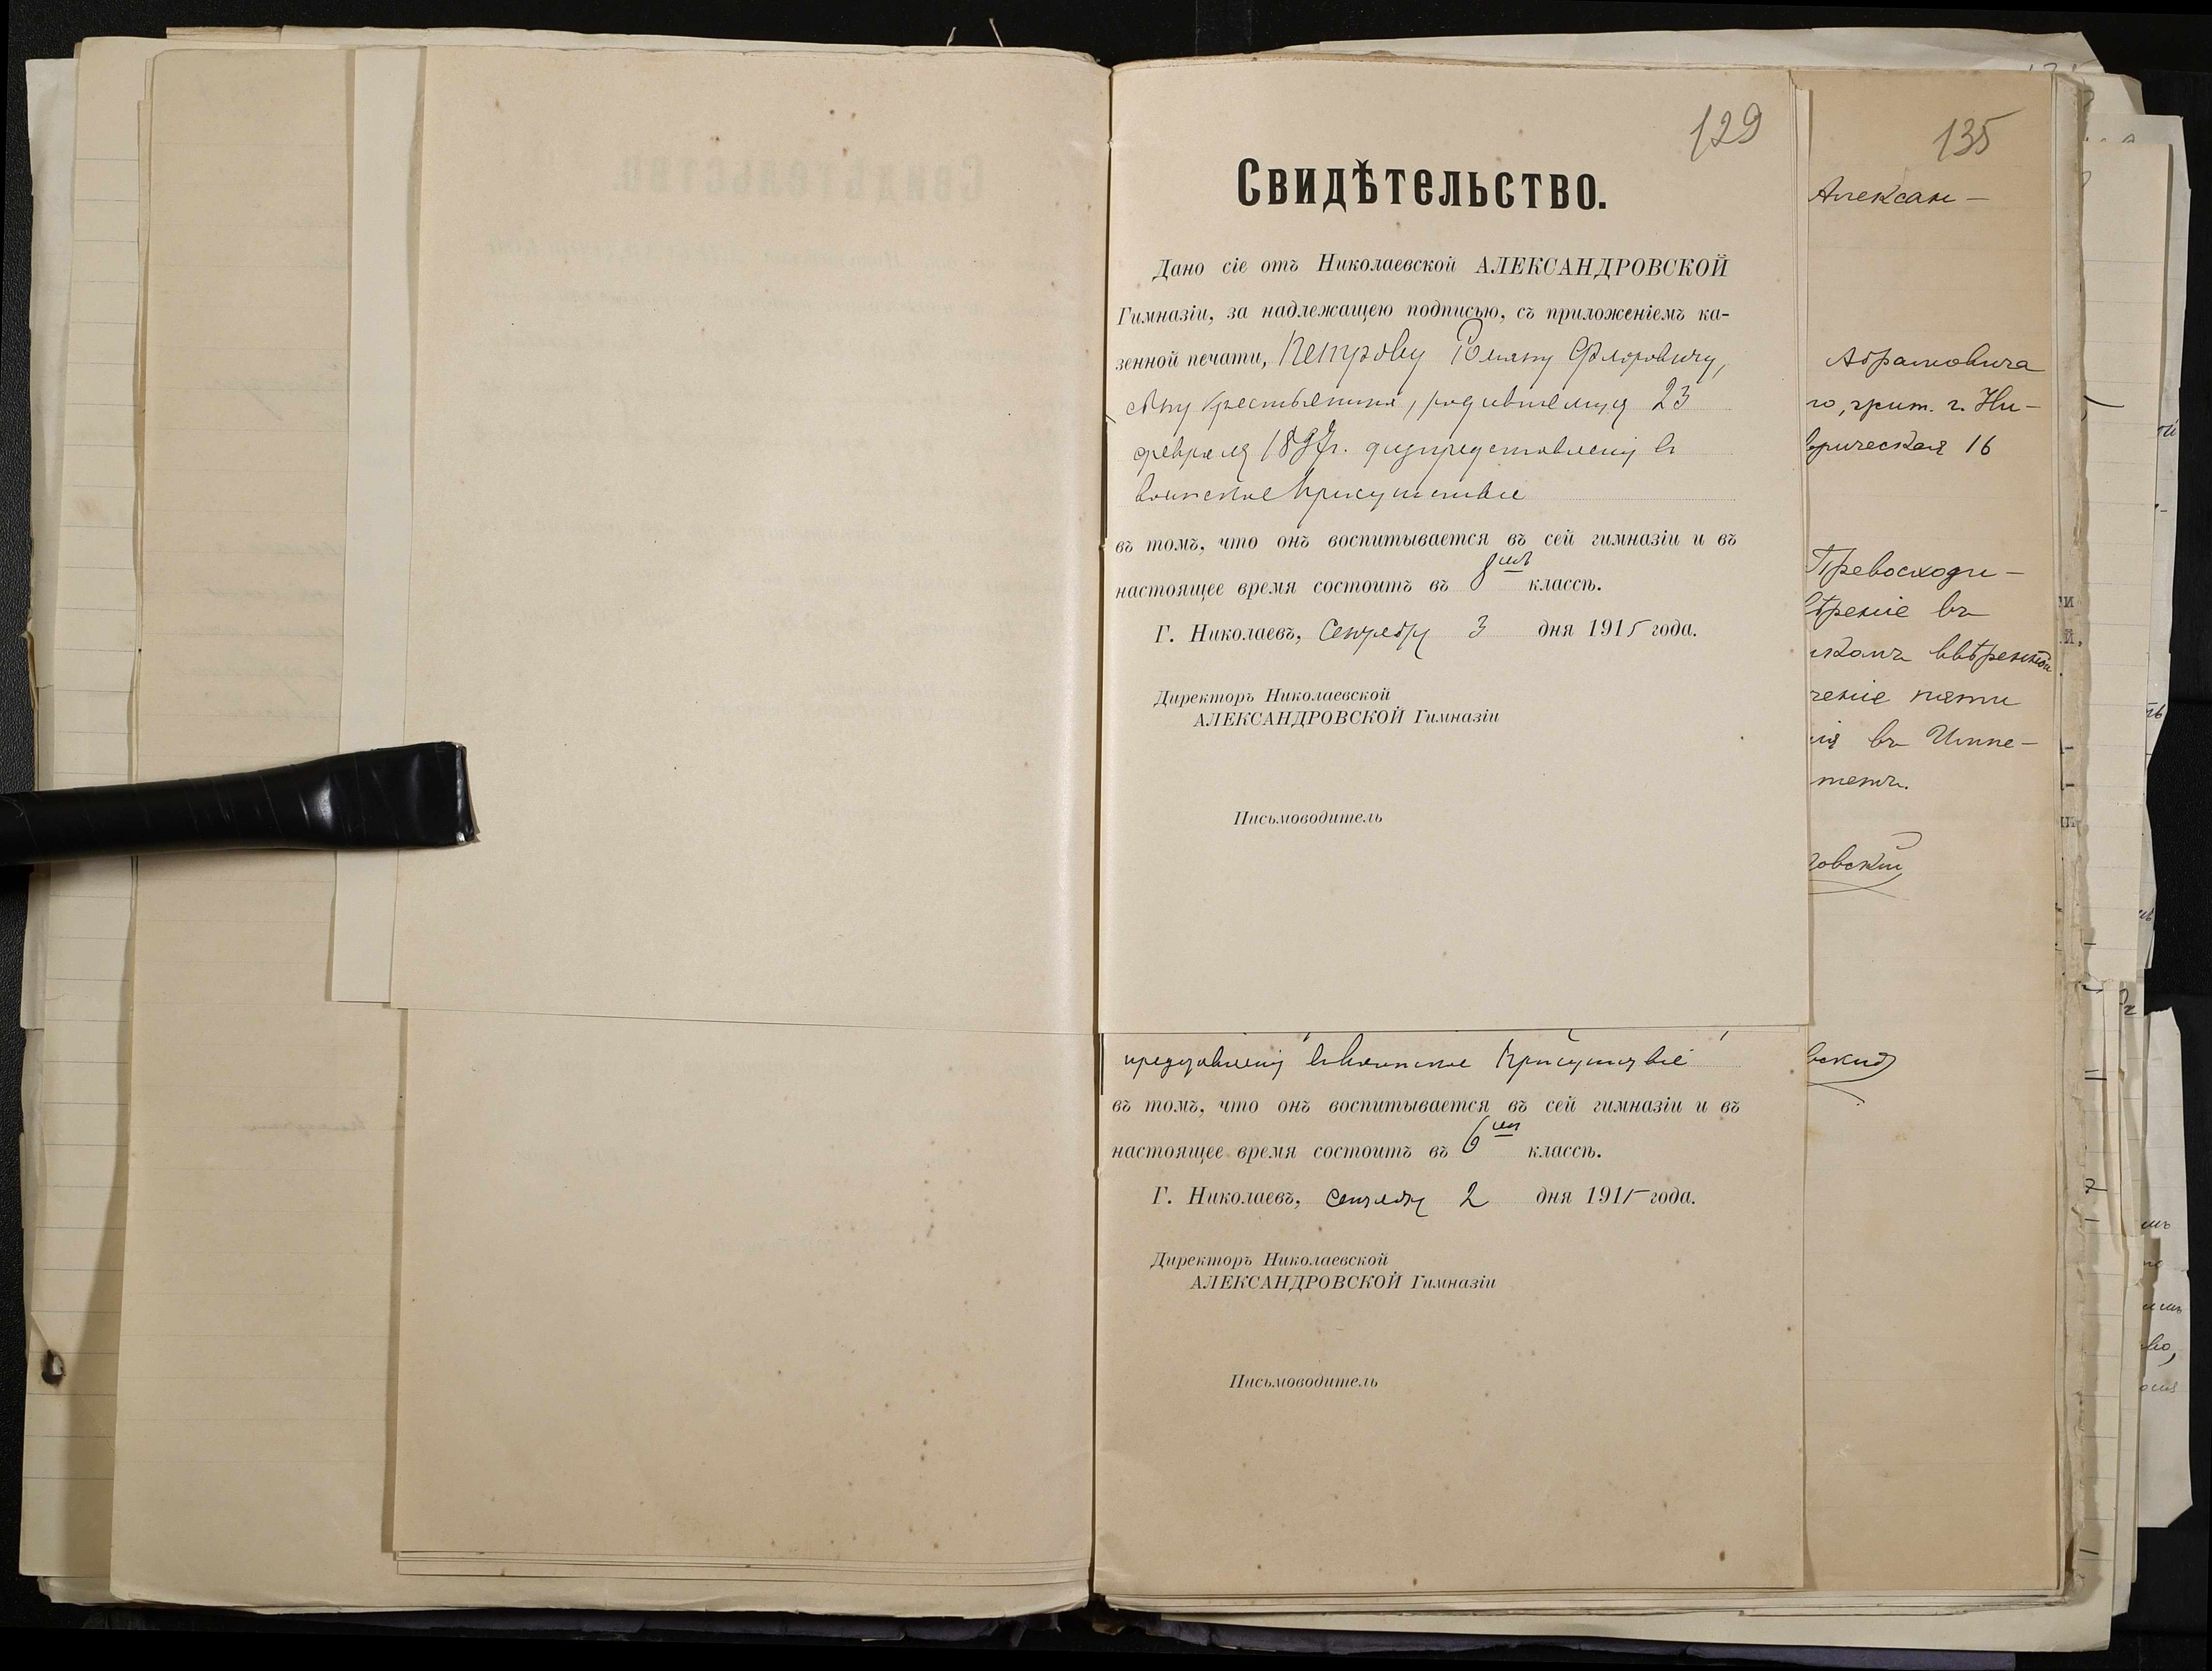 129
Свидѣтельство.
Дано сіе отъ Николаевской АЛЕКСАНДРОВСКОЙ
Гимназіи, за надлежащею подписью, съ приложеніемъ ка-
зенной печати, Петрову Роману Флоровичу,
сыну крестьянина, родившемуся 23
февраля 1897г. для представленія въ
воинское присутствіе
въ томъ, что онъ воспитывается въ сей гимназіи и въ
настоящее время состоитъ въ 8мъ классѣ.
Г. Николаевъ, Сентября 3 дня 1915 года.
Директоръ Николаевской
АЛЕКСАНДРОВСКОЙ Гимназіи
Письмоводитель
представленія въ воинское присутствіе
въ томъ, что онъ воспитывается въ сей гимназіи и въ
настоящее время состоитъ въ 6мъ классѣ.
Г. Николаевъ, сентября 2 дня 1915 года.
Директоръ Николаевской
АЛЕКСАНДРОВСКОЙ Гимназіи
Письмоводитель
135
Алексан-
Абрамовича
го, жит. г. Ни-
рическая 16
Превосходи-
ѣреніе въ
ввѣренной
ченіе пяти
ія въ Импе-
тетъ.
овскій
вскій